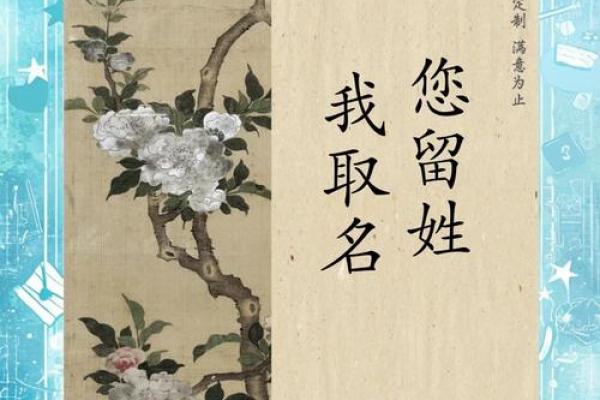 定制 满意为止
您留姓
我取名